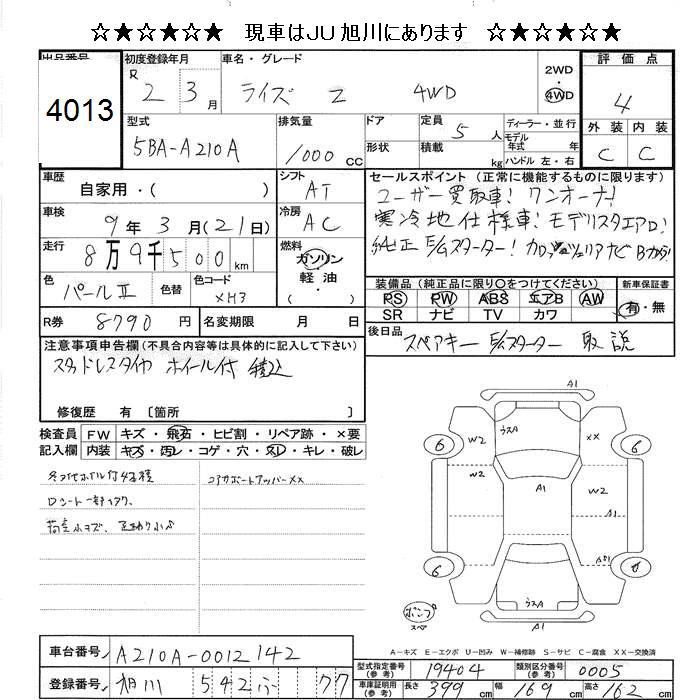 ☆★☆★☆★ 現車はJU旭川にあります ☆★☆★☆★
出品番号 4013
初度登録年月 R 2 3月
車名・グレード ライズ Z 4WD
2WD 4WD
評価点 4
外装 内装 C C
型式 5BA-A210A
排気量 1000 CC
ドア 形状
定員 5 人 積載 kg
ディーラー・並行
モデル年式 年式
ハンドル 左・右
車歴 自家用・( )
シフト AT
車検 9年3月(21日)
冷房 AC
走行 8万9千500km
燃料 ガソリン・軽油・( )
色 パールⅡ 色替 色コード XH3
R券 8790円 名変期限 月 日
セールスポイント(正常に機能するものに限ります)
ユーザー買取車!ワンオーナー!
寒冷地仕様車!モデリスタエアロ!
純正E/Gスターター! ナビ Bカメラ!
装備品(純正品に限り○をつけてください) 新車保証書
PS PW ABS エアB AW 有・無
SR ナビ TV カワ
後日品 スペアキー E/Gスターター 取説
注意事項申告欄(不具合内容等は具体的に記入して下さい)
スタッドレスタイヤ ホイール付 積込
修復歴 有〔箇所 〕
検査員記入欄
FW キズ・飛石・ヒビ割・リペア跡・×要
内装 キズ・汚レ・コゲ・穴・スレ・キレ・破レ
コアサポートアッパーXX
A1
6 W2 ウスA XX 6
W2 A1 W2
A1
6 ウスA 6
スペ
A1
A-キズ E-エクボ U-凹み W-補修跡 S-サビ C-腐食 XX-交換済
車台番号 A210A-0012142
型式指定番号(参考) 19404 類別区分番号(参考) 0005
登録番号 旭川 542 ふ 77
車庫証明用(参考) 長さ 399cm 幅 169cm 高さ 162cm